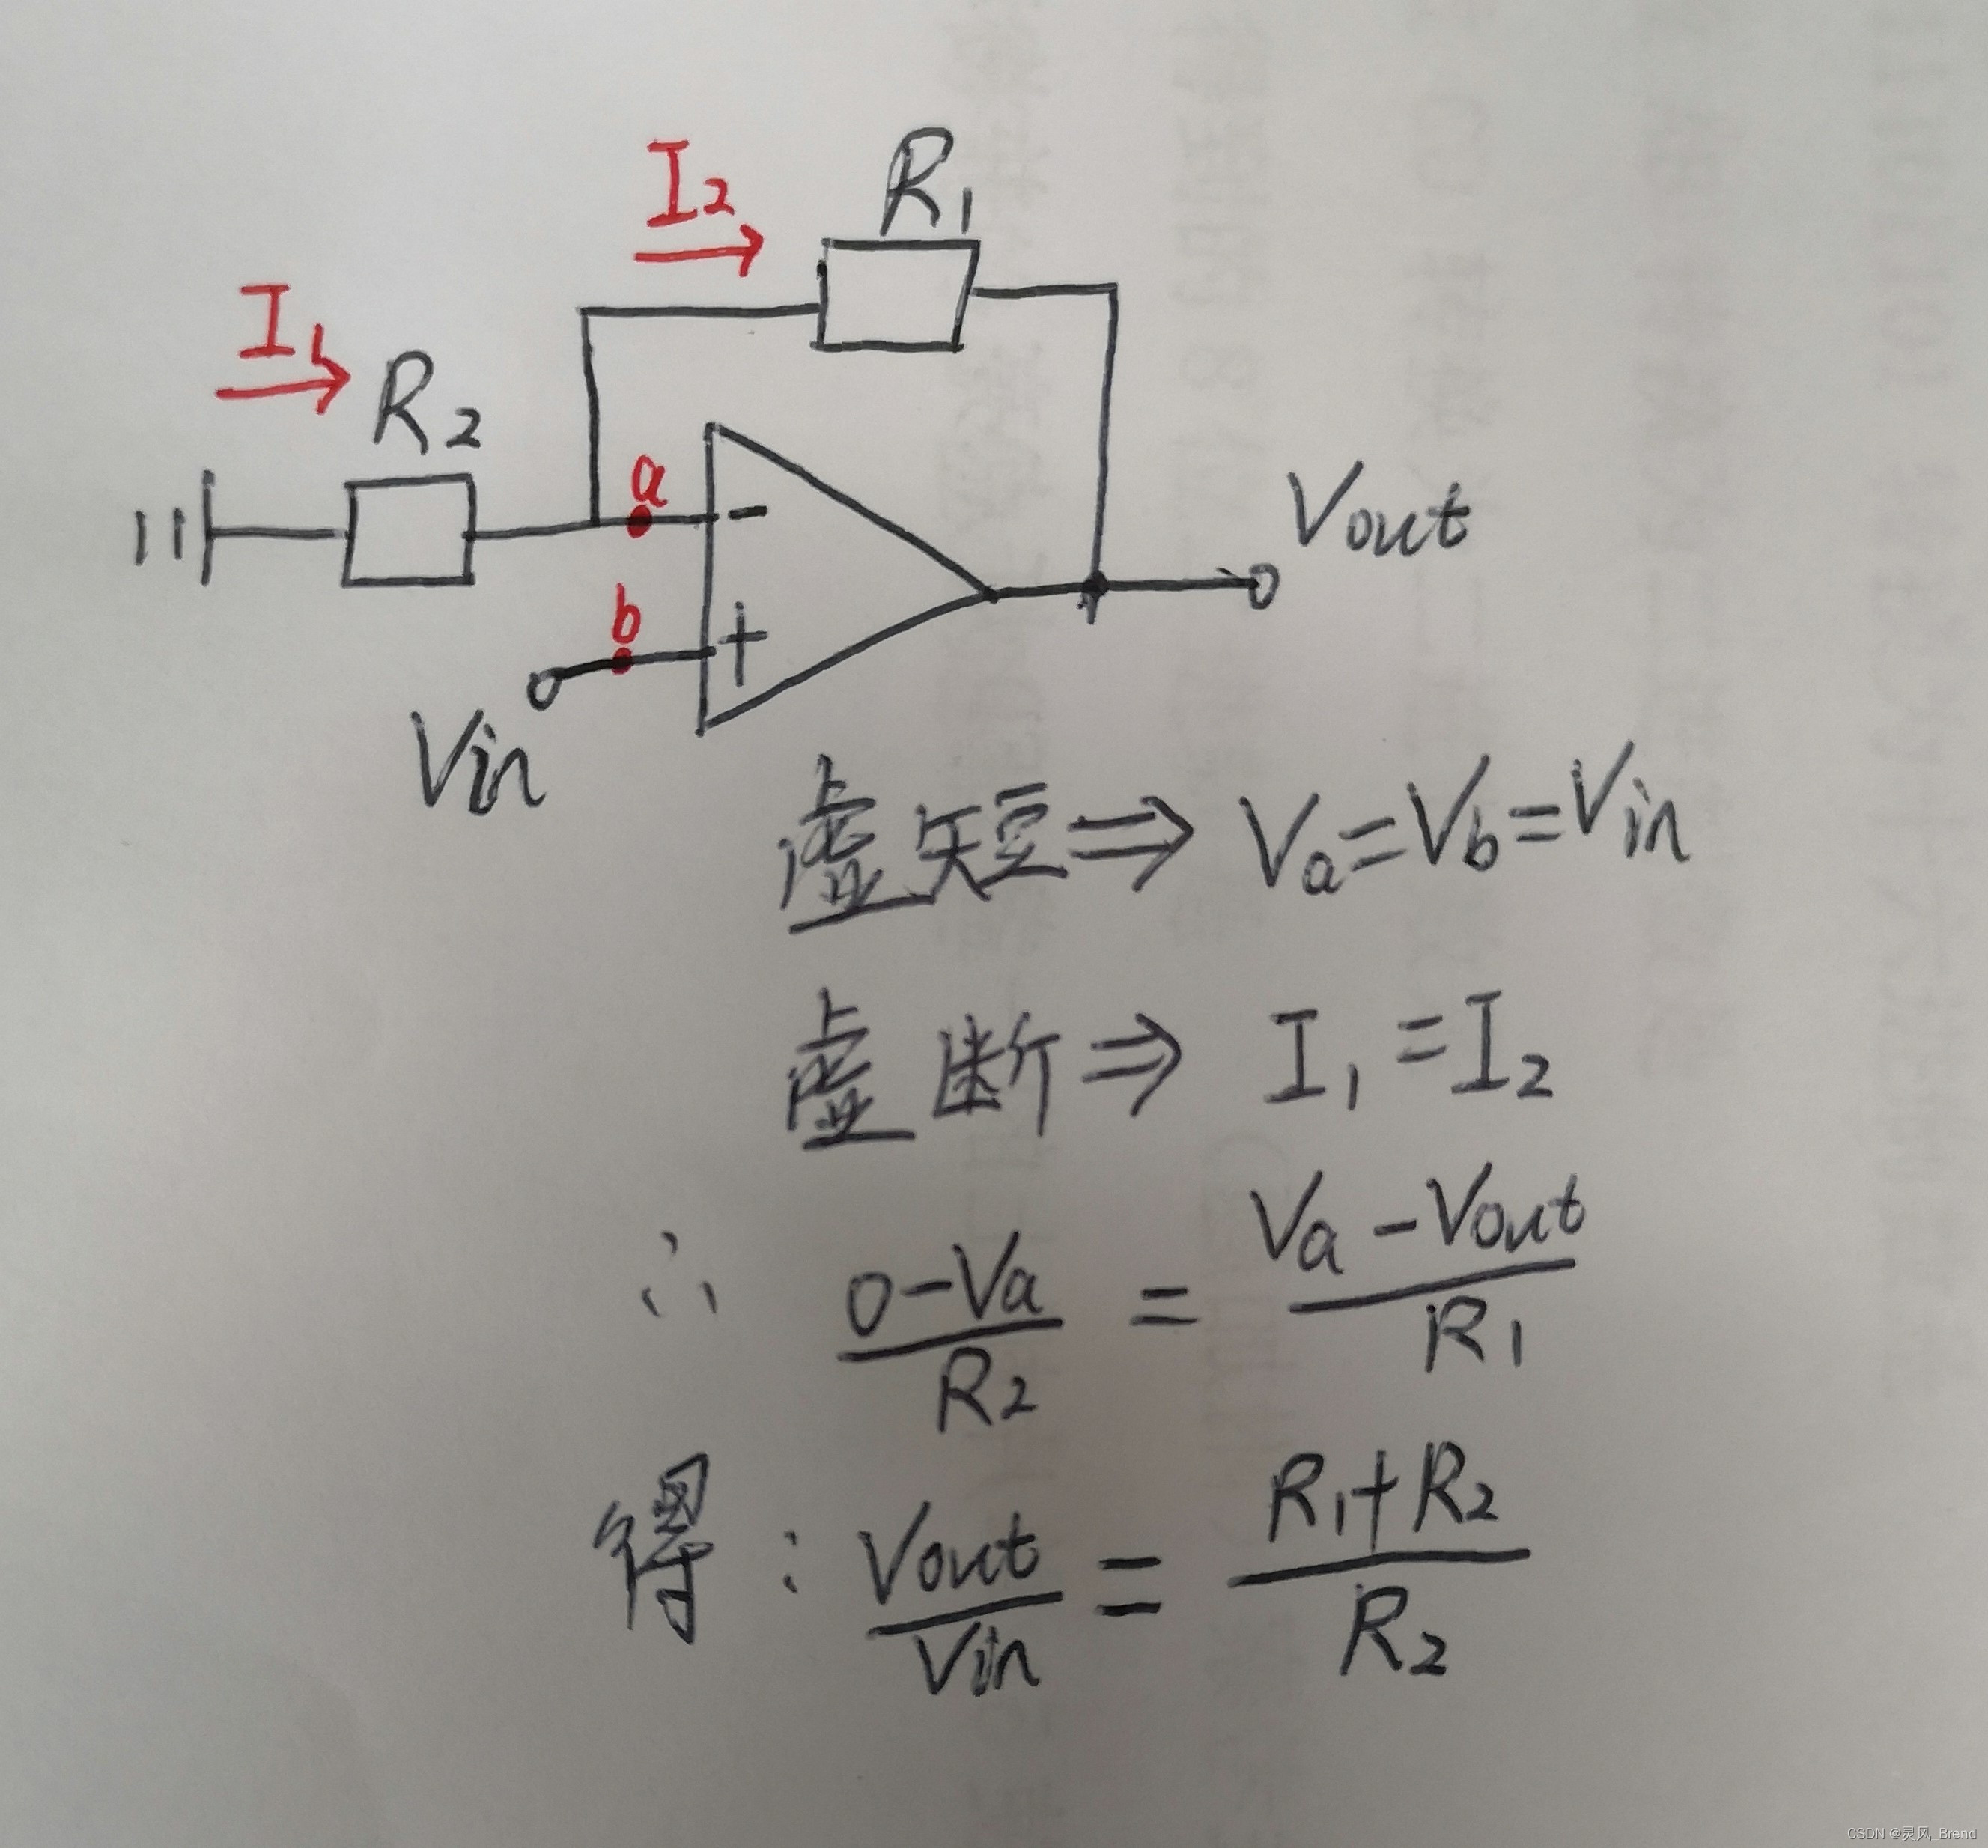 I2
R1
I1
R2
a
-
Vout
b
+
Vin
虚短⇒ Va=Vb=Vin
虚断⇒ I1=I2
∴ (0-Va)/R2 = (Va-Vout)/R1
得: Vout/Vin = (R1+R2)/R2
CSDN @灵风_Brend